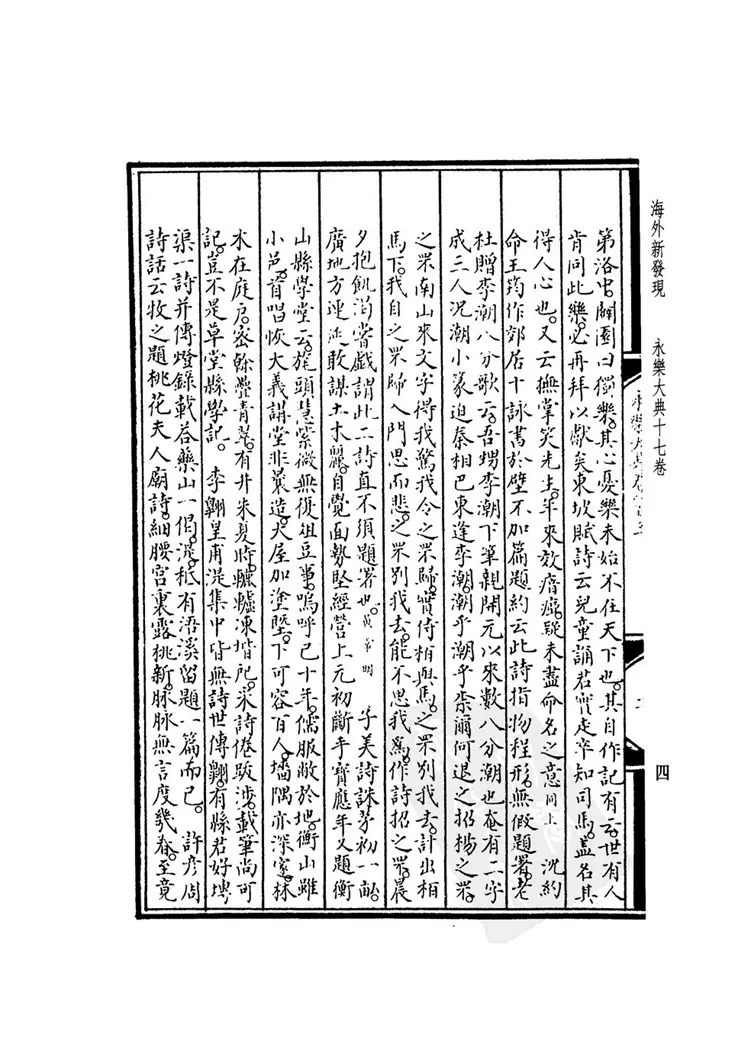 海外新發現 永樂大典十七卷
四
第洛中。闢園曰獨樂。其心憂樂未始不在天下也。其自作記有云。世有人
肯同此樂。必再拜以獻矣。東坡賦詩云。兒童誦君實。走卒知司馬。蓋名其
得人心也。又云。撫掌笑先生。年來效瘖瘂。疑未盡命名之意。同上 沈約
命王筠作郊居十詠。書於壁。不加篇題。約云。此詩指物程形。無假題署。老
杜贈李潮八分歌云。吾甥李潮下筆親。開元以來數八分。潮也奄有二字
成三人。況潮小篆逼秦相。巴東逢李潮。潮乎潮乎柰爾何。退之招楊之罘。
之罘南山來。文字得我驚。我令之罘歸。實侍栢與馬。之罘別我去。計出相
馬下。我自之罘歸。入門思而悲。之罘別我去。能不思我爲。作詩招之罘。晨
夕抱飢渴。嘗戲謂此二詩直不須題署也。黃常明 子美詩誅茅初一畝。
廣地方連延。敢謀土木麗。自覺面勢堅。經營上元初。斷手寶應年。又題衡
山縣學堂云。旄頭彗紫微。無復俎豆事。嗚呼已十年。儒服敝於地。衡山雖
小邑。首唱恢大義。講堂非曩造。大屋加塗塈。下可容百人。墻隅亦深邃。林
木在庭戶。密榦疊青翠。有井朱夏時。轆轤凍堦戺。采詩倦跋涉。載筆尚可
記。豈不是草堂縣學記。 李翺皇甫湜集中皆無詩。世傳翺有縣君好塼
渠一詩。并傳燈錄載荅藥山一偈。湜秖有浯溪留題一篇而已。 許彥周
詩話云。牧之題桃花夫人廟詩。細腰宮裏露桃新。脉脉無言度幾春。至竟